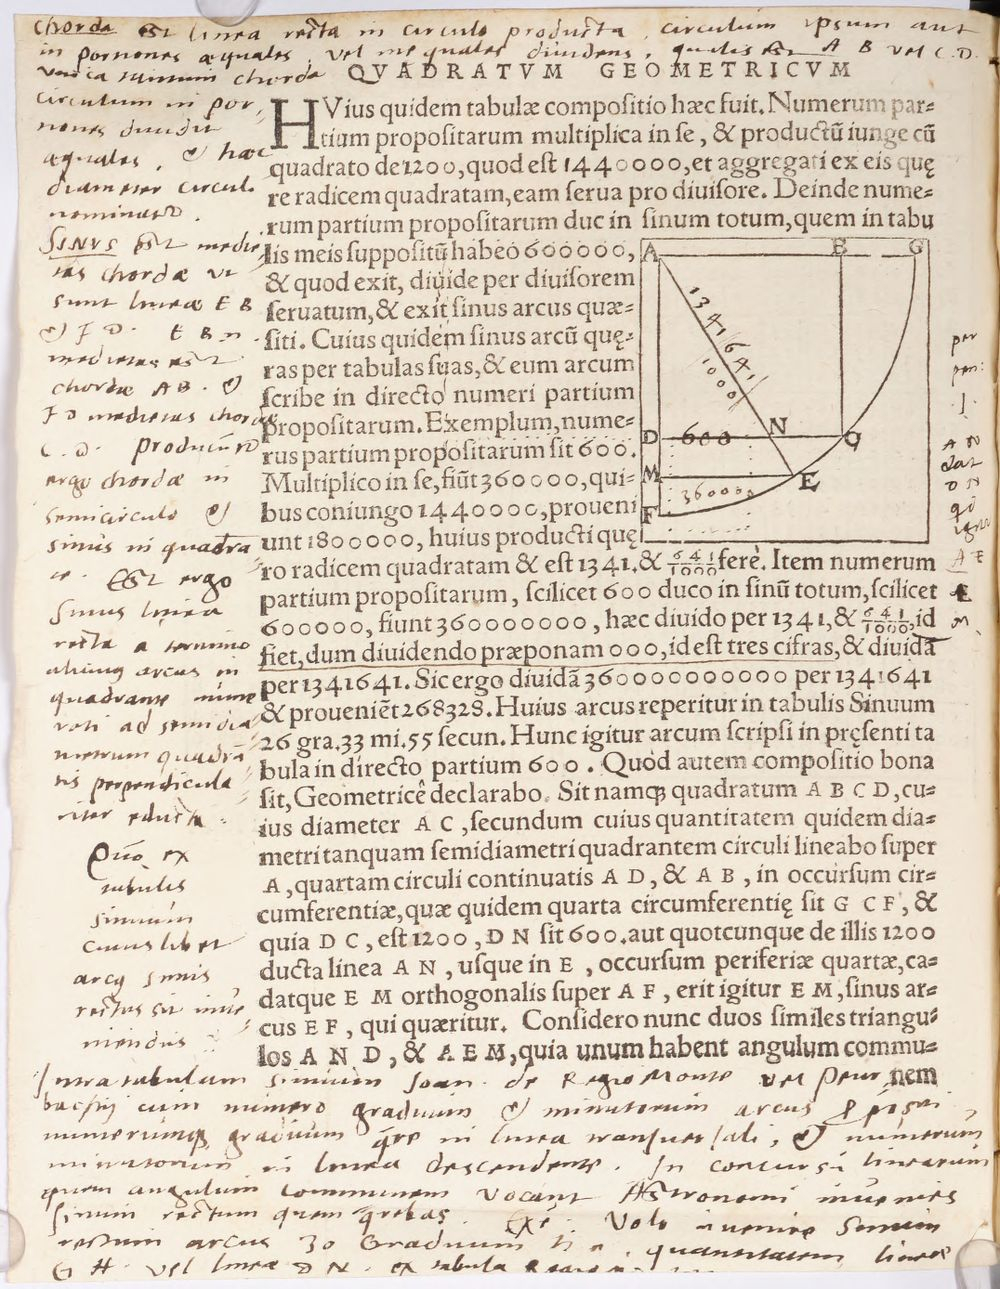 Chorda est linea recta in circulo producta, circulum ipsum aut
in portiones æquales, vel inequales dividens, qualis est A B vel C. D.
QVADRATVM GEOMETRICVM
HVius quidem tabulæ compoſitio hæc fuit. Numerum par=
tium propoſitarum multiplica in ſe, & productū iunge cū
quadrato de 1200, quod eſt 1440000, et aggregati ex eis quę
re radicem quadratam, eam ſerua pro diuiſore. Deinde nume=
rum partium propoſitarum duc in ſinum totum, quem in tabu
lis meis ſuppoſitū habeo 600000,
& quod exit, diuide per diuiſorem
ſeruatum, & exit ſinus arcus quæ=
ſiti. Cuius quidem ſinus arcū quę=
ras per tabulas ſuas, & eum arcum
ſcribe in directo numeri partium
propoſitarum. Exemplum, nume=
rus partium propoſitarum ſit 600.
Multiplico in ſe, fiūt 360000, qui=
bus coniungo 1440000, proueni
unt 1800000, huius producti quę
ro radicem quadratam & eſt 1341. & 641/1000 ferè. Item numerum
partium propoſitarum, ſcilicet 600 duco in ſinū totum, ſcilicet
600000, fiunt 360000000, hæc diuido per 1341, & 641/1000, id
fiet, dum diuidendo præponam 000, id eſt tres cifras, & diuidā
per 1341641. Sic ergo diuidā 360000000000 per 1341641
& proueniēt 268328. Huius arcus reperitur in tabulis Sinuum
26 gra. 33 mi. 55 ſecun. Hunc igitur arcum ſcripſi in pręſenti ta
bula in directo partium 600. Quòd autem compoſitio bona
ſit, Geometricê declarabo. Sit namq; quadratum A B C D, cu=
ius diameter A C, ſecundum cuius quantitatem quidem dia=
metri tanquam ſemidiametri quadrantem circuli lineabo ſuper
A, quartam circuli continuatis A D, & A B, in occurſum cir=
cumferentiæ, quæ quidem quarta circumferentię ſit G C F, &
quia D C, eſt 1200, D N ſit 600. aut quotcunque de illis 1200
ducta linea A N, uſque in E, occurſum periferiæ quartæ, ca=
datque E M orthogonalis ſuper A F, erit igitur E M, ſinus ar=
cus E F, qui quæritur. Conſidero nunc duos ſimiles triangu=
los A N D, & A E M, quia unum habent angulum commu=
nem
A B G
1341641
1000
D 600 N Q
M E
360000
F
chorda
circulum in por-
tiones dividit
æquales, & hæc
diameter circuli
nominatur.
SINUS est medie
tas chordæ ut
sunt lineæ E B
& F D. E B n.
medietas est
chordæ A B. &
F D medietas chordæ
C. D. producuntur
ergo chordæ in
semicirculo &
sinus in quadra
te. Est ergo
Sinus linea
recta a termino
alicuius arcus in
quadrante nume
rati ad semidia
metrum quadrā
tis perpendicula
riter educta.
ex
tabulis
sinuum
cuius libet
arcus sinus
rectus sit inve
niendus
A N
D N
A E
E
M
Intra tabulam sinuum Joan. de Regio Monte vel Peur
bachij cum numero graduum & minutorum arcus
numerumq; graduum in linea transversali, & numerum
minutorum in linea descendente. In concursu linearum
quem angulum communem vocant Astronomi invenies
sinum rectum quem Volo invenire Sinum
rectum arcus 30 Graduum quantitatem lineæ
G H vel lineæ D N. ex tabula